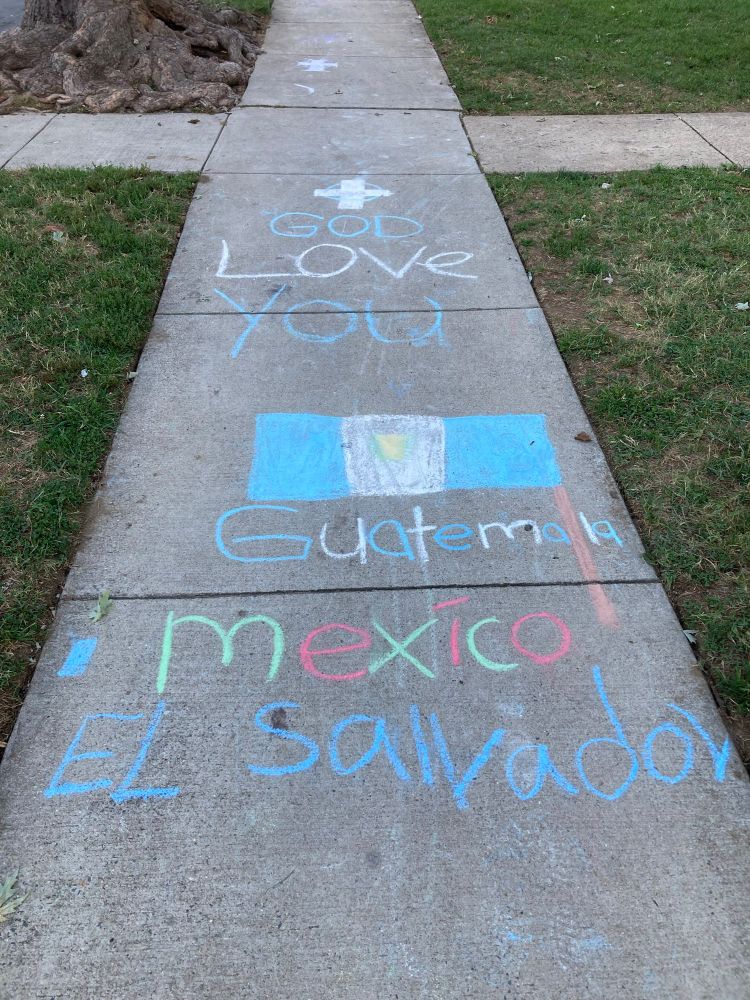 GOD
Love
You
Guatemala
mexíco
EL Salvador